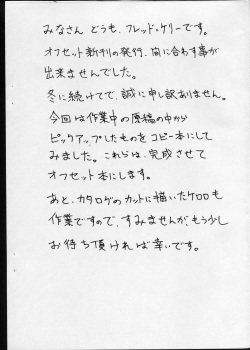 みなさん どうも、フレッド・ケリーです。
オフセット新刊の発行、間に合わす事が
出来ませんでした。
冬に続けてで、誠に申し訳ありません。
今回は作業中の原稿の中から
ピックアップしたものをコピー本にして
みました。これらは、完成させて
オフセット本にします。
あと、カタログのカットに描いたケロロも
作業中ですので、すみませんが、もう少し
お待ち頂ければ幸いです。